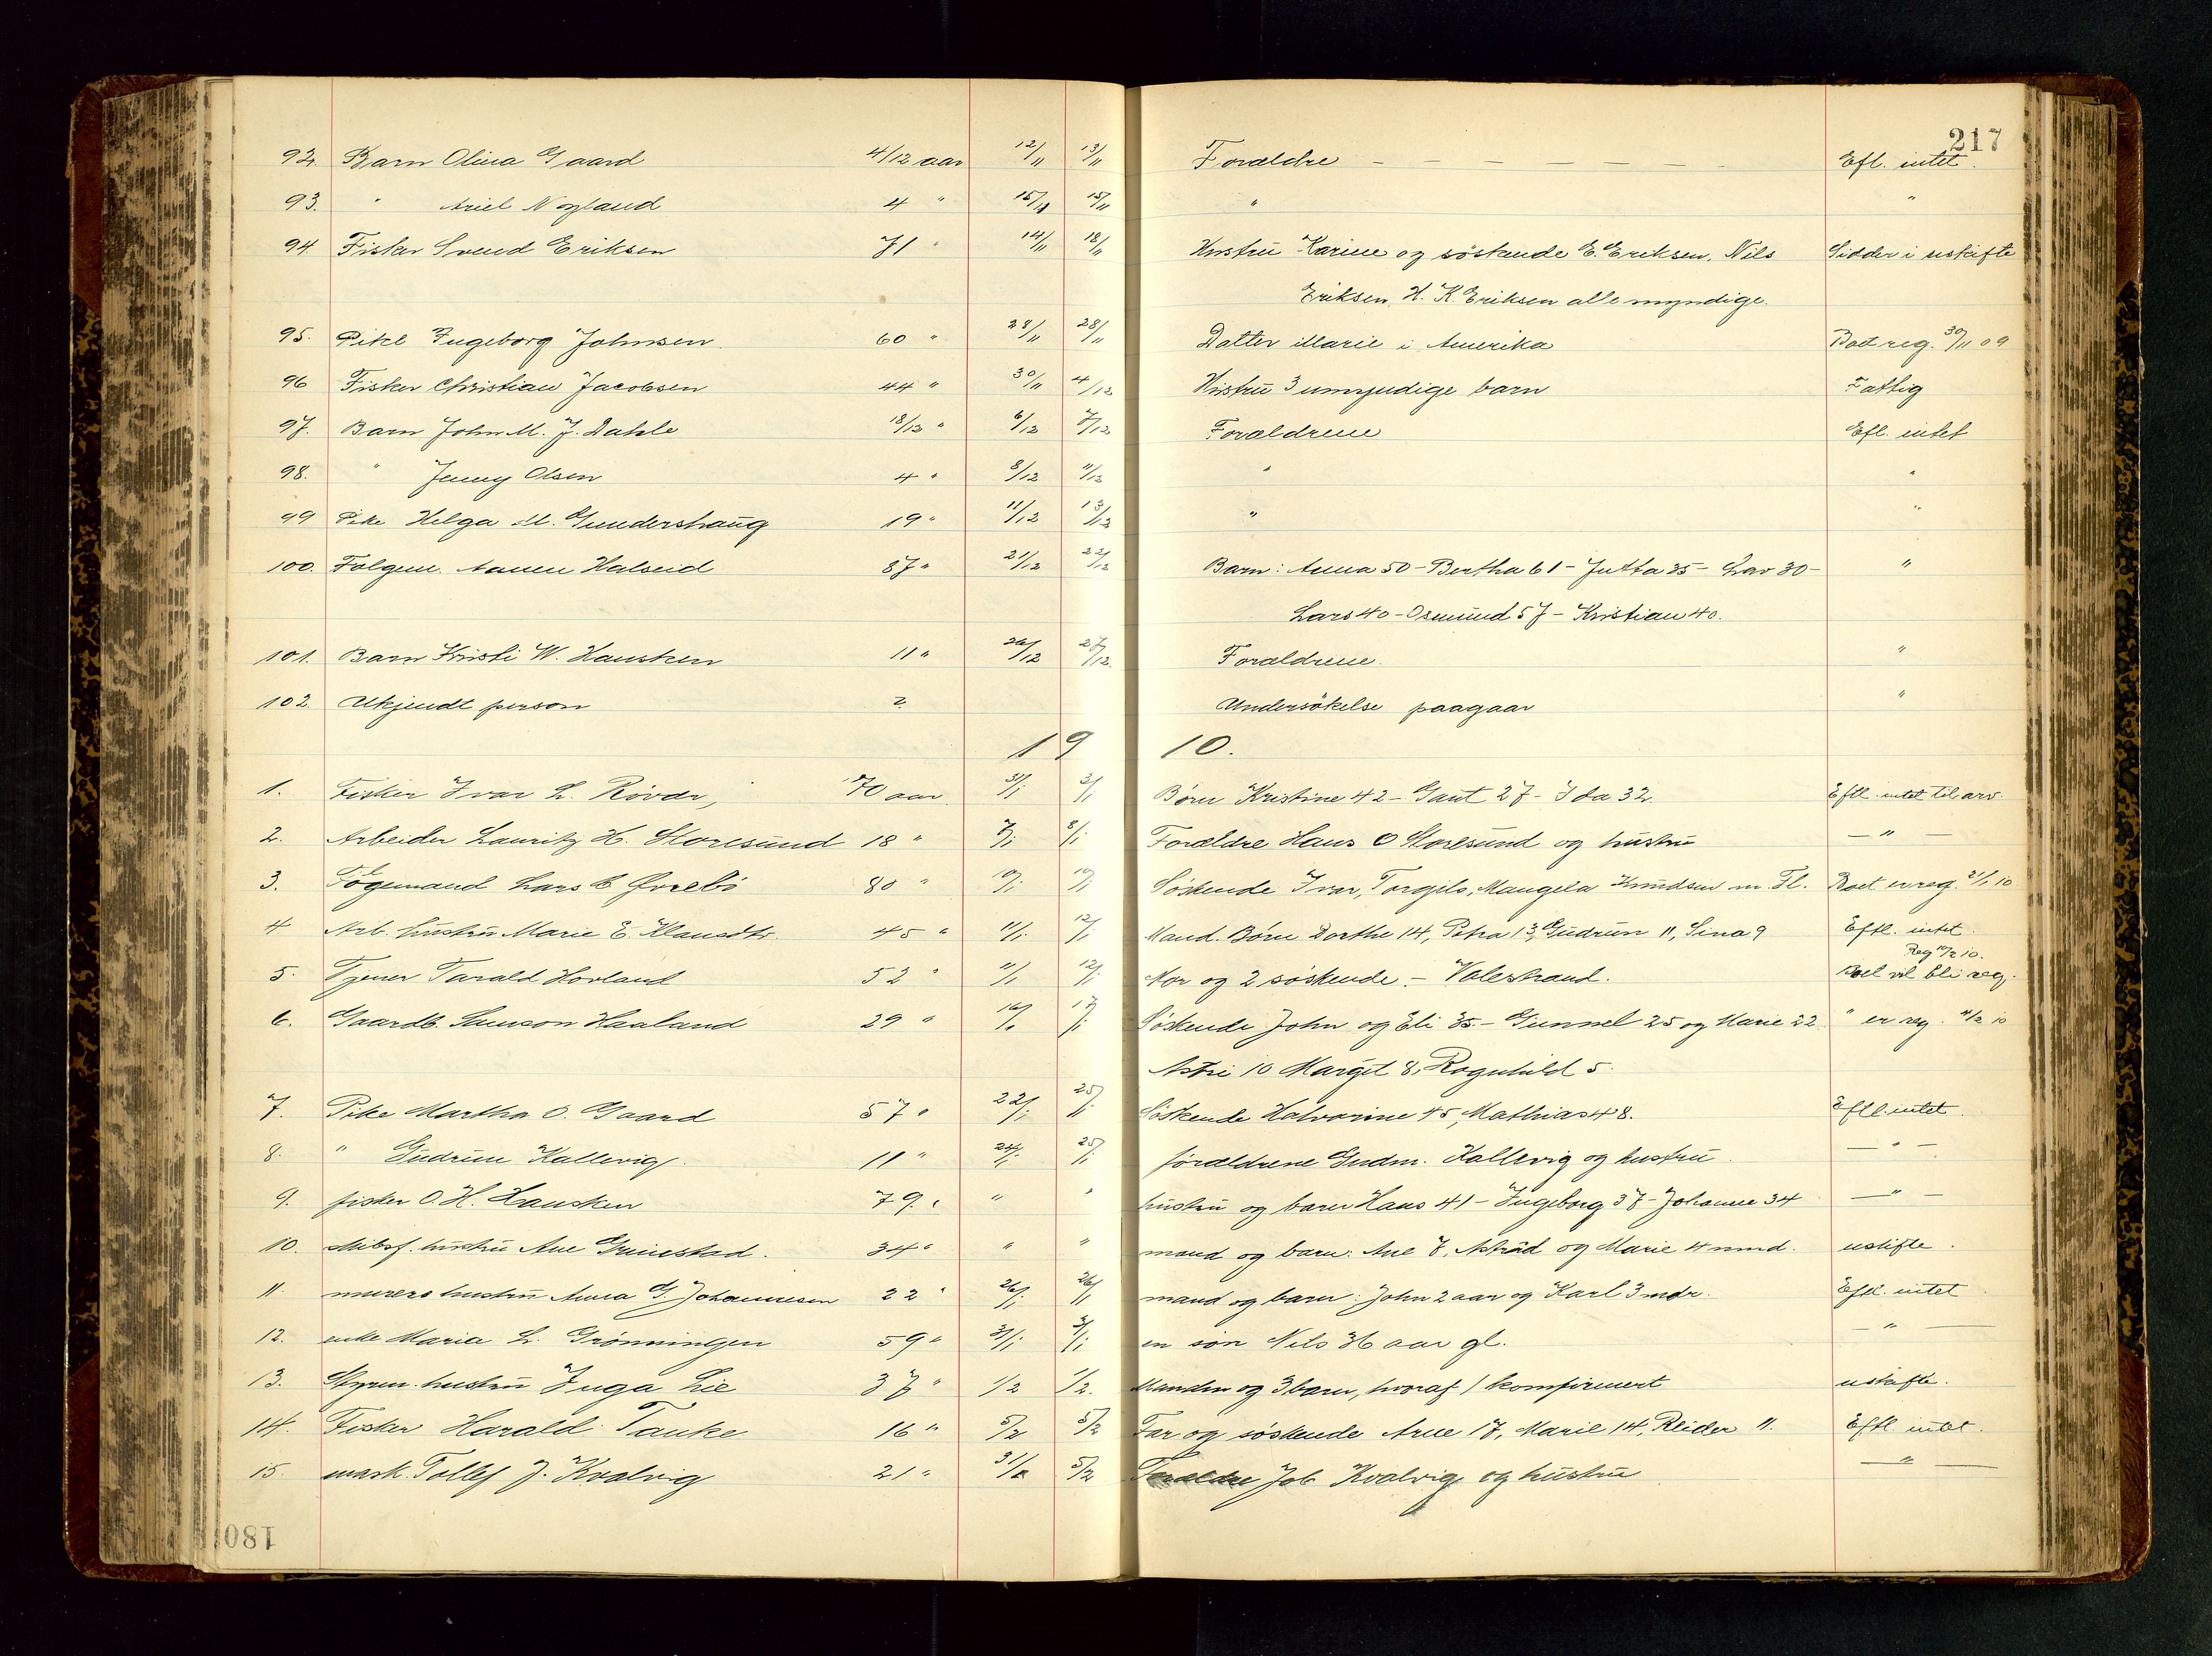 217
92. Barn Olina Gaard 4/12 aar 12/11 13/11 Forældre — — — — — — — Efl. intet.
93. " Ariel Nygland 4 " 15/11 15/11 " "
94. Fisker Svend Eriksen 71 " 14/11 18/11 Hustru Karine og söskende E. Eriksen, Nils Sidder i uskifte
Eriksen, H. K Eriksen alle myndige.
95. Pike Ingeborg Johnsen. 60 " 28/11 28/11 Datter Marie i Amerika Boet reg. 30/11 09
96 Fisker Christian Jacobsen 44 " 30/11 4/12 Hustru 3 umyndige barn Fattig
97. Barn John M. J. Dahle 18/12 " 6/12 7/12 Forældrene Efl. intet
98. " Jenny Olsen 4 " 8/12 11/12 " "
99 Pike Helga M. Gundershaug 19 " 11/12 13/12 " "
100. Følgem. Aanen Halseid 87 " 21/12 22/12 Barn: Anna 50 - Bertha 61 - Jutta 35 - Lar 30 - "
Lars 40 - Osmund 57 - Kristian 40.
101. Barn Kristi W. Hausken 11 " 26/12 27/12. Forældrene. "
102. Ukjendt person ? Undersökelse paagaar "
1910.
1. Fisker Ivar L. Rövær, 70 aar. 31/1 3/1 Børn Kristine 42 - Gant 27 - Ida 32. Eftl. intet til arv.
2. Arbeider Lauritz H. Storesund 18 " 7/1 8/1 Forældre Hans O Storesund og hustru — " —
3. Føgemand Lars B Øvrebö 80 " 10/1 19/1 Söskende Ivar, Torgils, Mangela Knudsen m. Fl. Boet er reg. 21/1 10
4 Arb. hustru Marie E. Klausdtr. 45 " 11/1 12/1 Mand. Børn Dorthe 14, Petra 13, Gudrun 11, Sina 9 Eftl. intet.
Reg 10/2 10.
5. Tjener Tarald Hovland 52 " 11/1 12/1 Mor og 2 söskende. - Valestrand. Boet vil bli reg.
6. Gaardb. Samson Haaland 29 " 16/1 17/1 Söskende John og Eli 35. - Gunnel 25 og Marie 22 " er reg. 11/2 10
Astri 10 Marget 8, Ragnhild 5.
7. Pike Martha O. Gaard 57 " 22/1 25/1 Söskende Halvarine 45, Mathias 48. Eftl. intet.
8. " Gudrun Kallevig. 11 " 24/1 25/1 forældrene Gudm. Kallevig og hustru. — " —
9. fisker O. H. Hausken 79 " " " hustru og barn Hans 41 - Ingeborg 37 - Johanne 34 — " —
10. Skibsf. hustru Ane Grinestad. 34 " " " mand og barn: Ane 7, Astrid og Marie 4 mnd. uskifte.
11. murers hustru Anna G. Johannesen 22 " 26/1 26/1 mand og barn: John 2 aar og Karl 3 mdr. Eftl. intet.
12. enke Maria L. Grønningen 59 " 31/1 3/1 en søn Nils 36 aar gl. — " —
13. Styrm. hustru Inga Lie 37 " 1/2 1/2. Manden og 3 barn, hvoraf 1 konfirmert uskifte.
14. Fisker Harald Tanke 16 " 5/2 5/2 Far og söskende Arne 17, Marie 14, Reider 11. Eftl. intet.
15. mask. Tollef J. Kvalvig 21 " 31/1 5/2 Forældre Job Kvalvig og hustru — " —
180